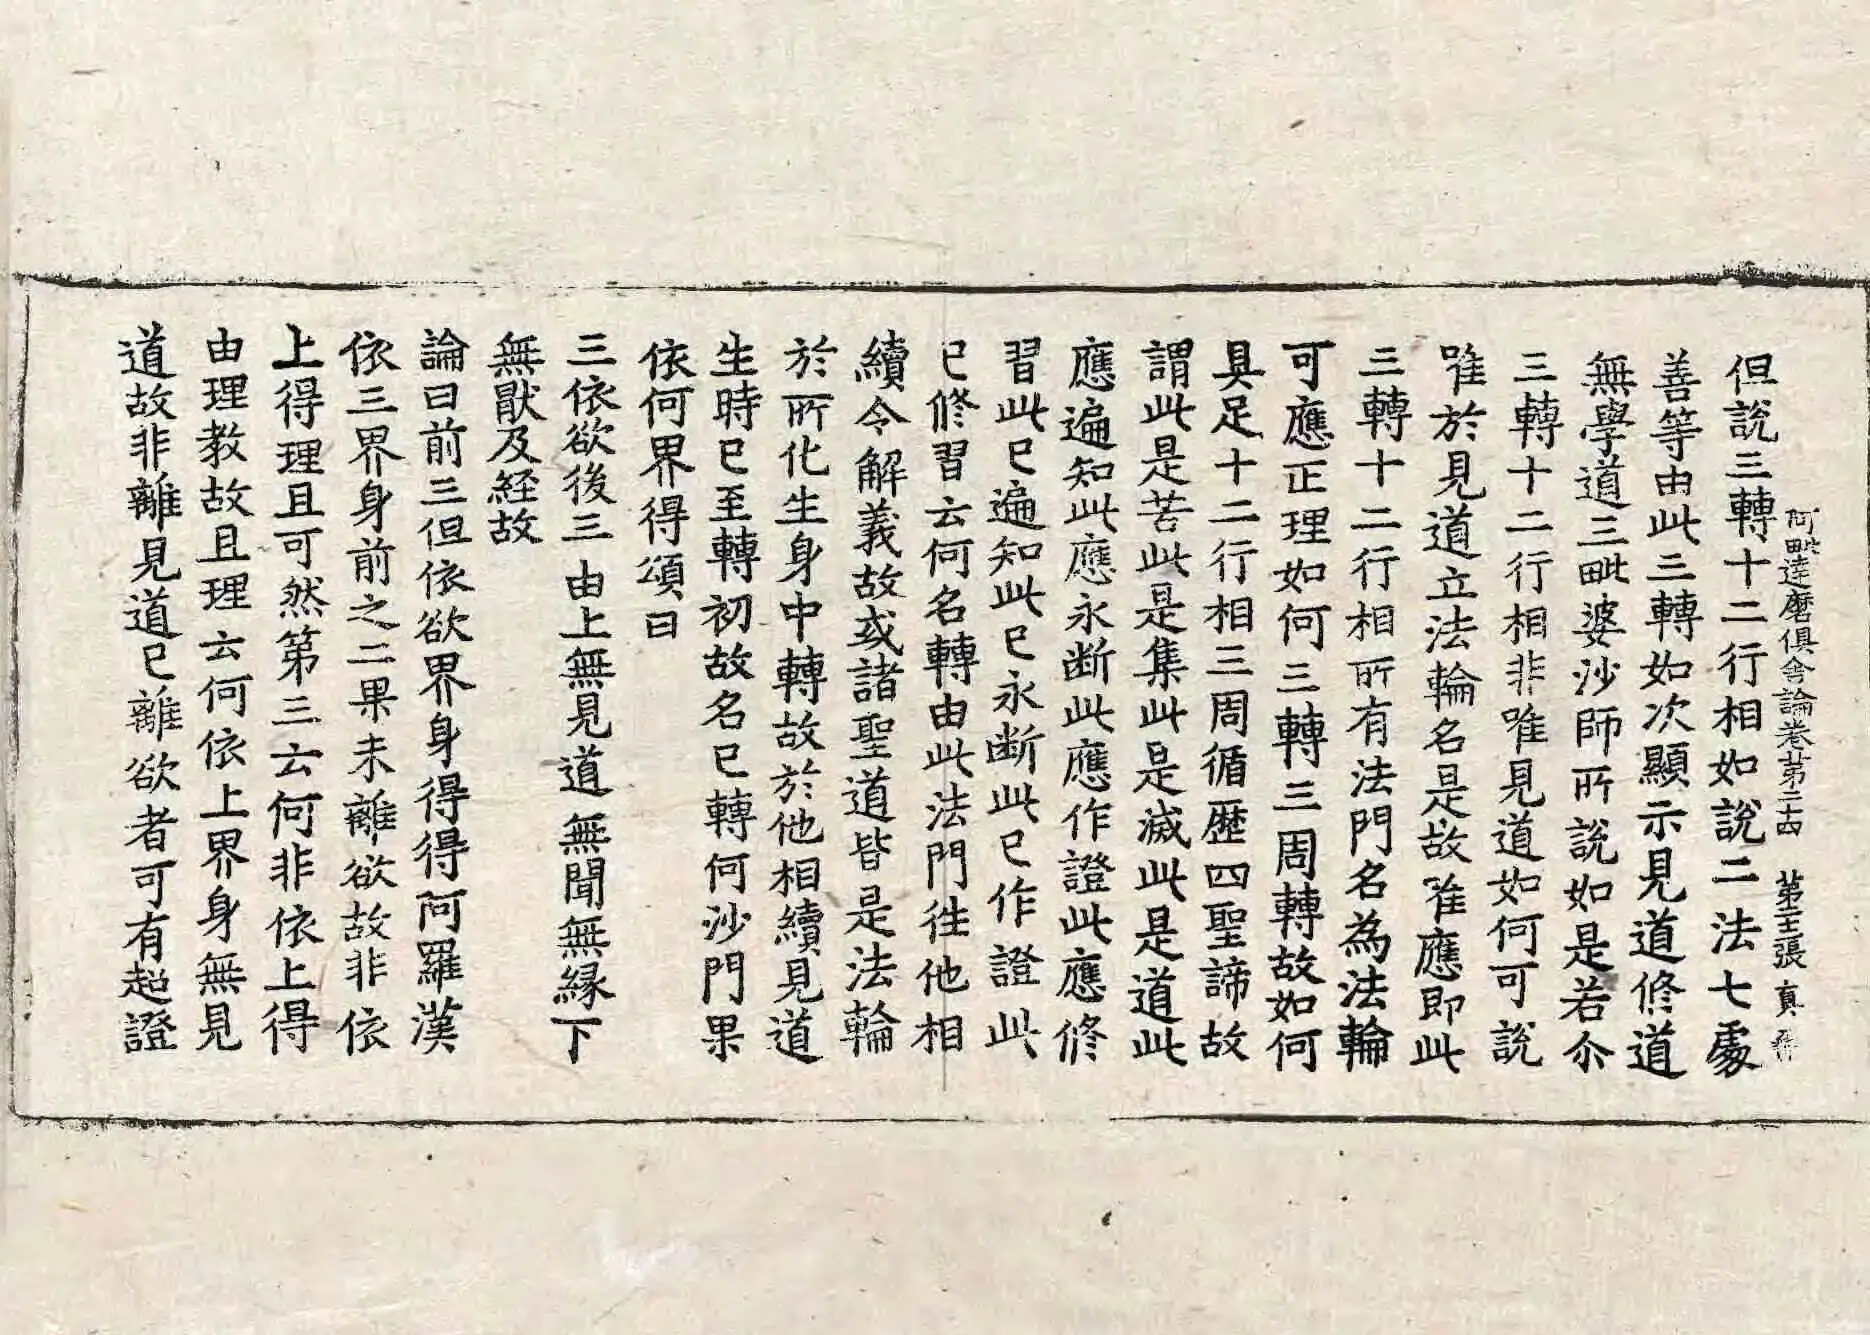 阿毗達磨俱舍論卷第二十四　第三張　真
但説三轉十二行相如説二法七處
善等由此三轉如次顯示見道修道
無學道三毗婆沙師所説如是若尒
三轉十二行相非唯見道如何可說
唯於見道立法輪名是故唯應即此
三轉十二行相所有法門名為法輪
可應正理如何三轉三周轉故如何
具足十二行相三周循歷四聖諦故
謂此是苦此是集此是滅此是道此
應遍知此應永断此應作證此應修
習此已遍知此已永断此已作證此
已修習云何名轉由此法門往他相
續令解義故或諸聖道皆是法輪
於所化生身中轉故於他相續見道
生時已至轉初故名已轉何沙門果
依何界得頌曰
三依欲後三　由上無見道　無聞無縁下
無猒及経故
論曰前三但依欲界身得得阿羅漢
依三界身前之二果未離欲故非依
上得理且可然第三云何非依上得
由理教故且理云何依上界身無見
道故非離見道已離欲者可有超證